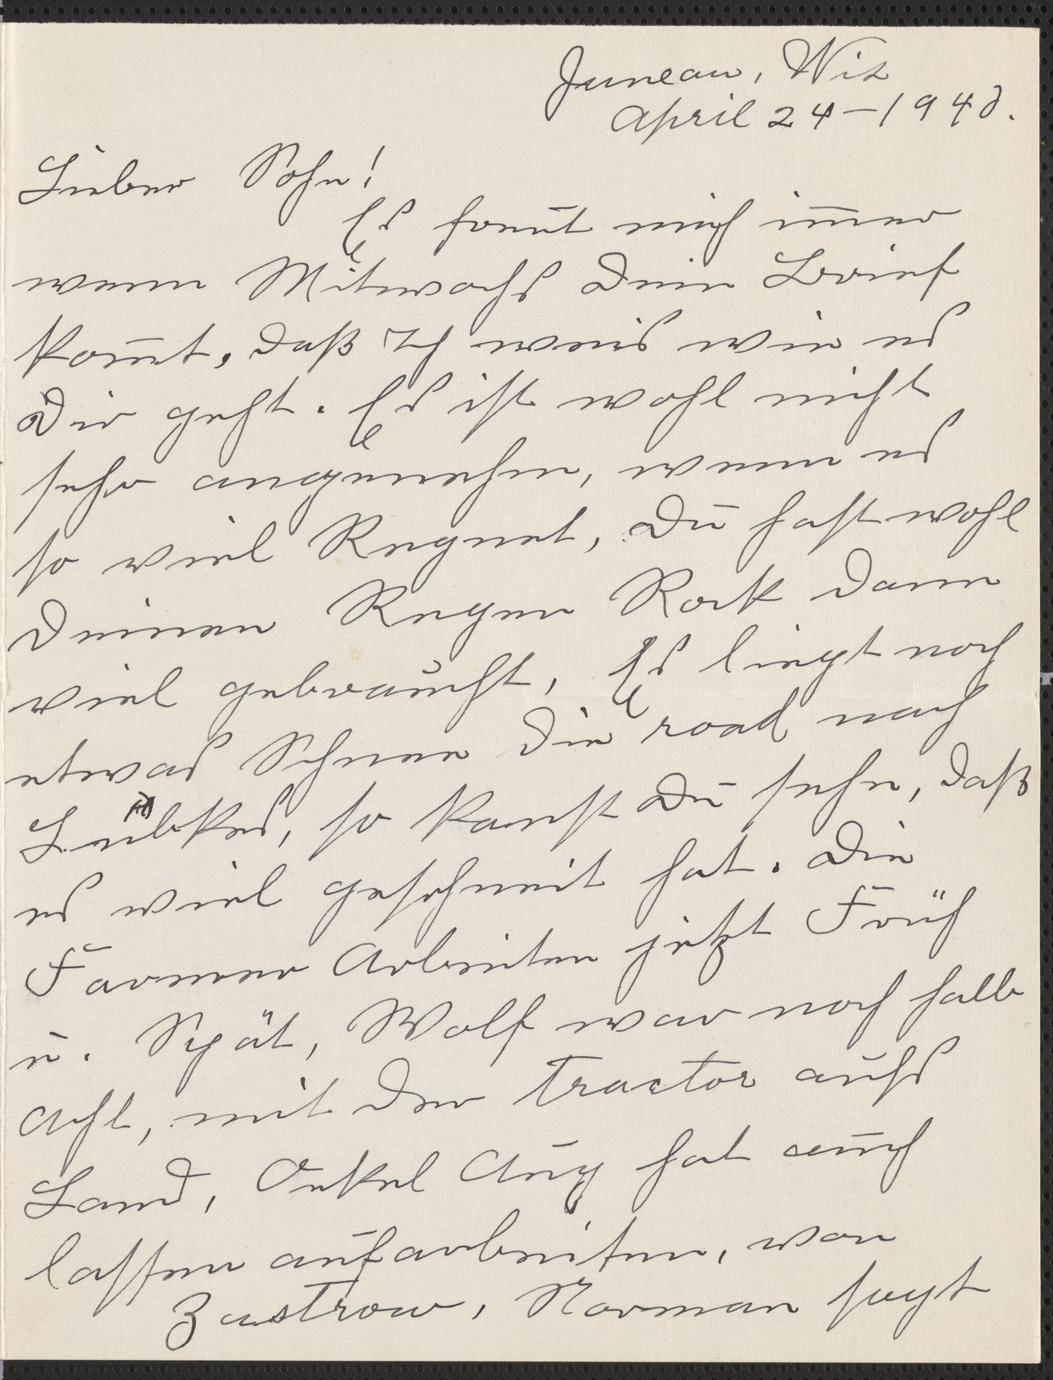 Juneau, Wis
April 24-1943.
Lieber Sohn!
Es freut mich im̄er
wenn Mitwochs Dein Brief
kom̄t, daß Ich weis wie es
Dir geht. Es ist wohl nicht
sehr angenehm, wenn es
so viel Regnet, Du hast wohl
Deinen Regen Rock dann
viel gebraucht, Es liegt noch
etwas Schnee die road nach
Lübkes, so kanst Du sehn, daß
es viel geschneit hat. Die
Farmer Arbeiten jetzt Früh
u. Spät, Wolf war noch halb
Acht, mit den Tractor aufs
Land, Onkel Aug hat auch
lassen aufarbeiten, von
Zastrow, Norman sagt